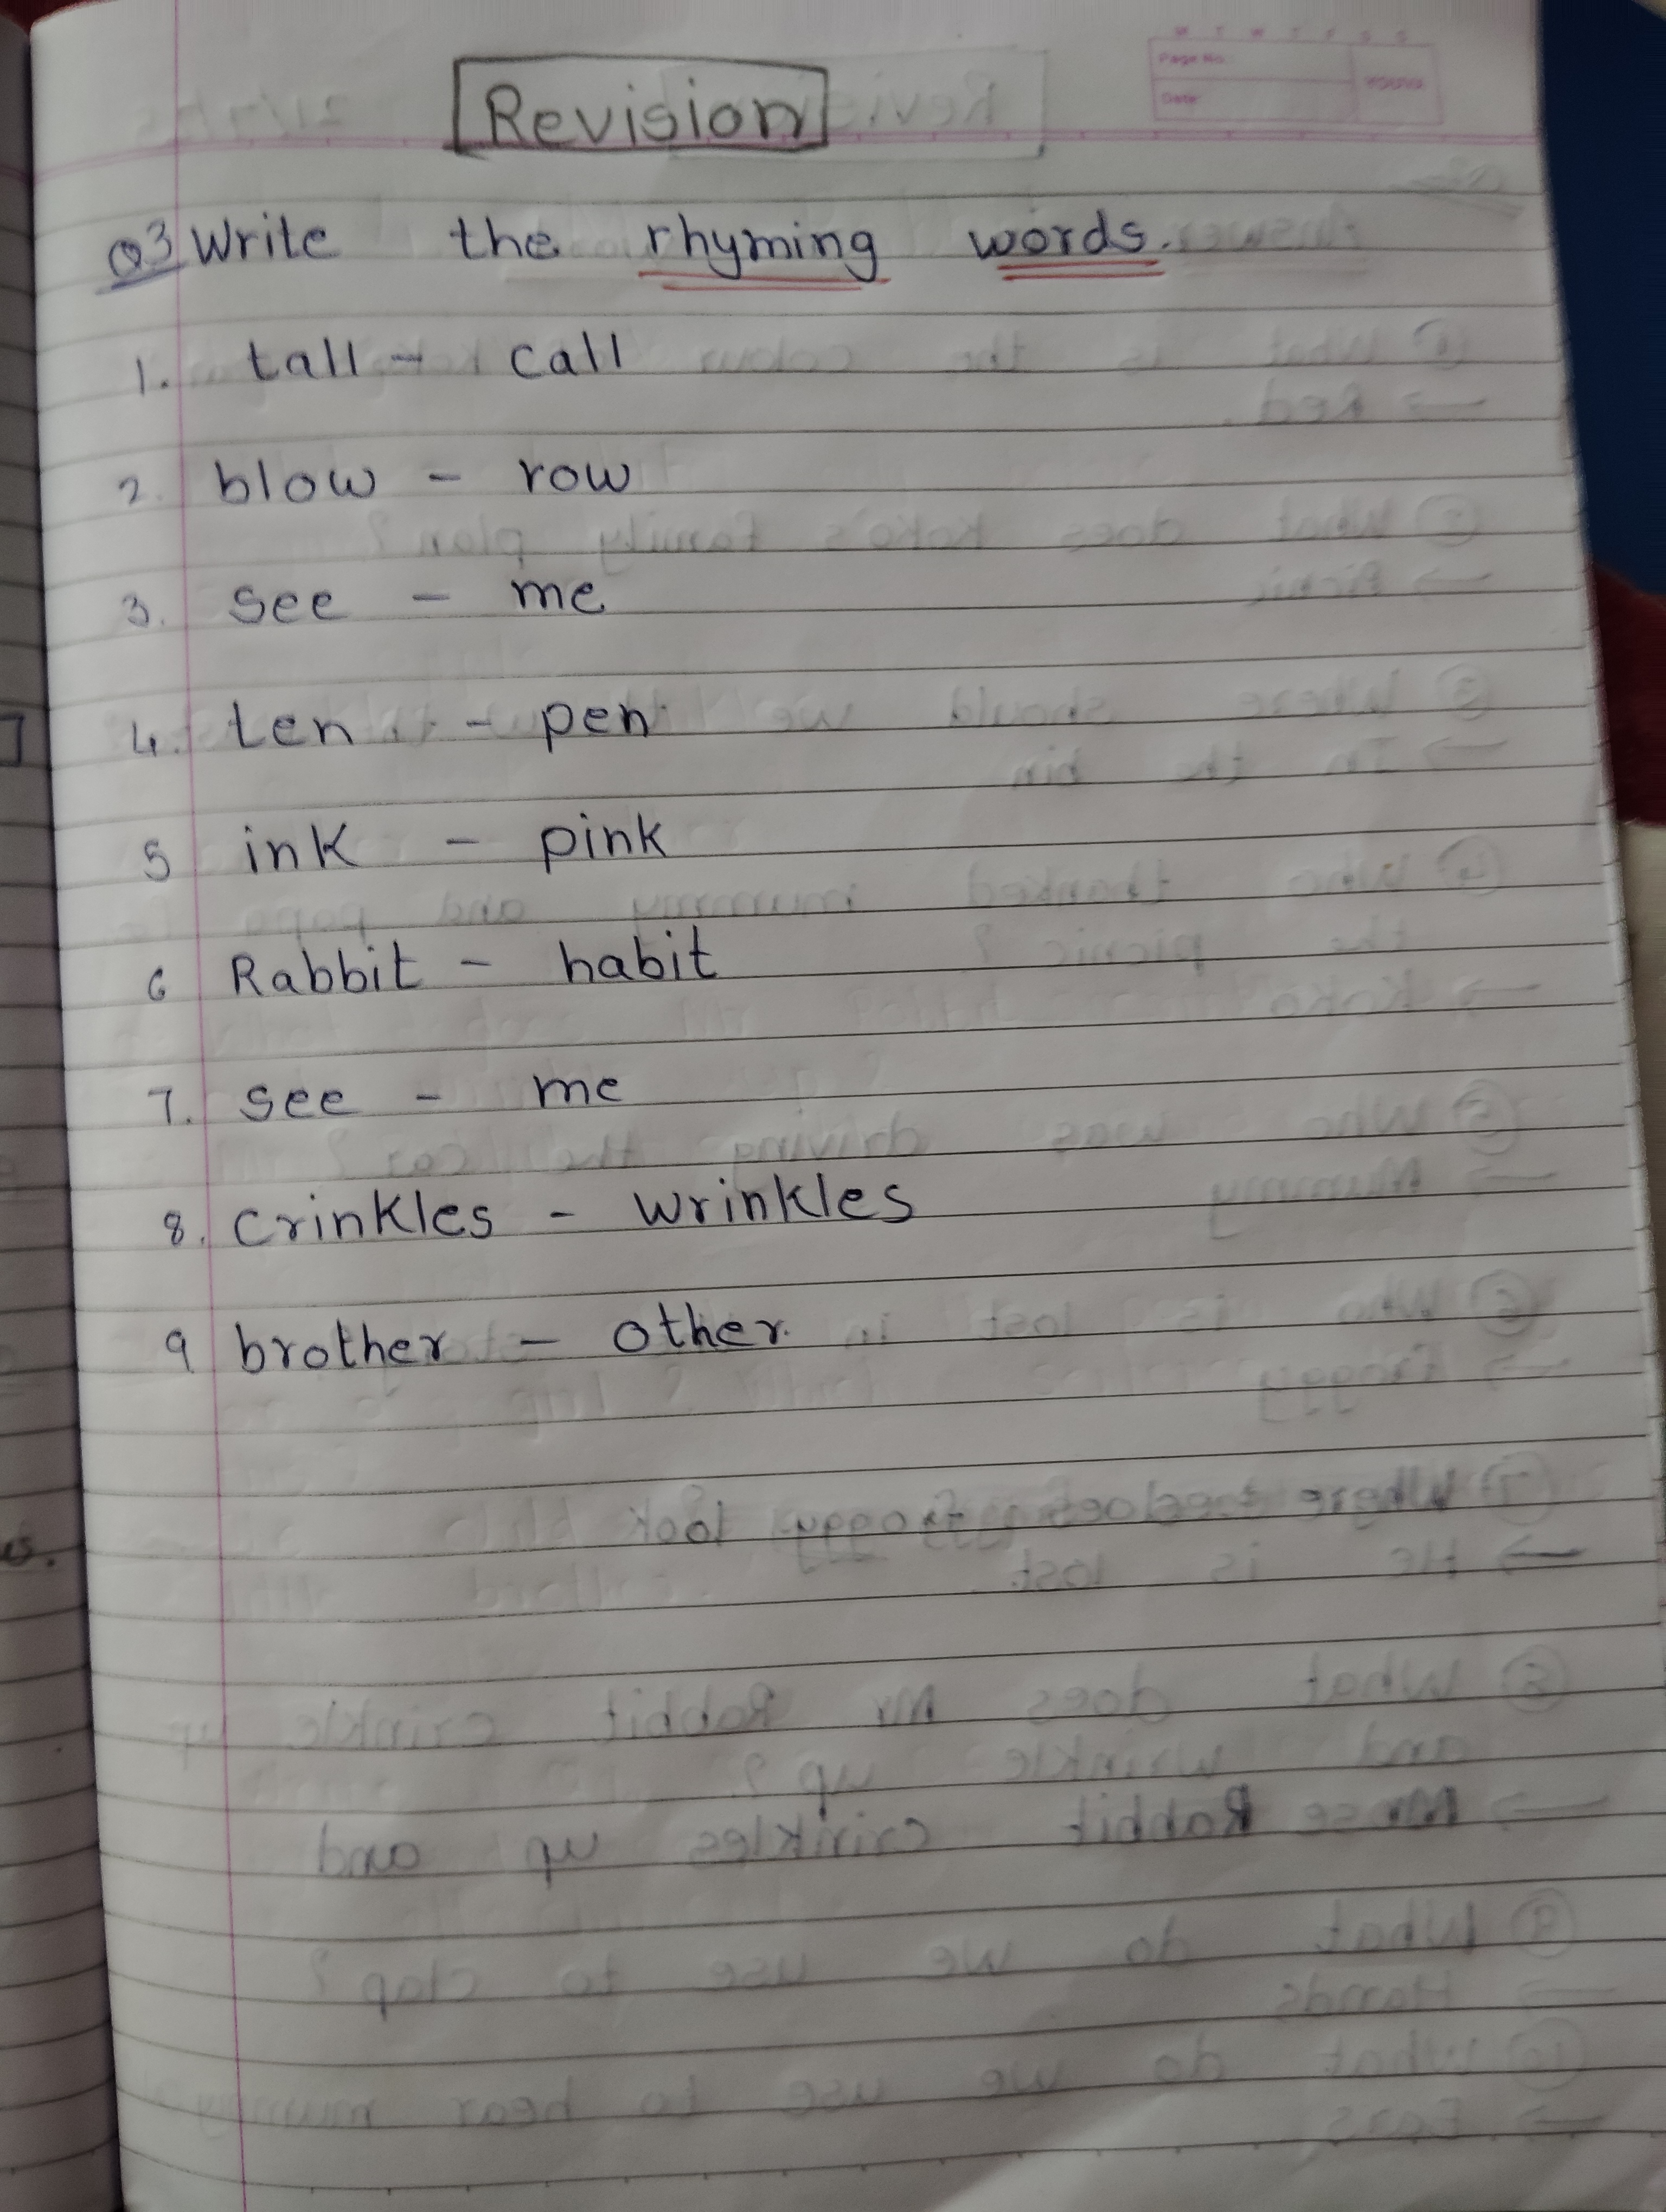 Revision
M T W T F S S
Page No.:
Date:
YOUVA
Q3 Write the rhyming words.
1. tall - call
2. blow - row
3. see - me
4. ten - pen
5 ink - pink
6 Rabbit - habit
7. see - me
8. Crinkles - wrinkles
9 brother - other